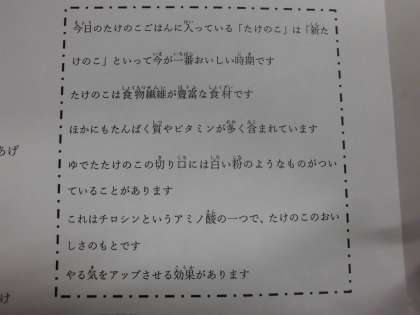 今日のたけのこごはんに入っている「たけのこ」は「新た
けのこ」といって今が一番おいしい時期です
たけのこは食物繊維が豊富な食材です
ほかにもたんぱく質やビタミンが多く含まれています
ゆでたたけのこの切り口には白い粉のようなものがつい
ていることがあります
これはチロシンというアミノ酸の一つで、たけのこのおい
しさのもとです
やる気をアップさせる効果があります
あげ
け